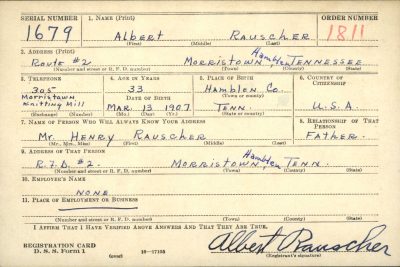 SERIAL NUMBER 1. NAME (Print) ORDER NUMBER
1679 Albert Rauscher 1811
(First) (Middle) (Last)
2. ADDRESS (Print)
Route #2 Morristown, Hamblen, Tennessee
(Number and street or R. F. D. number) (Town) (County) (State)
3. TELEPHONE 4. AGE IN YEARS 5. PLACE OF BIRTH 6. COUNTRY OF CITIZENSHIP
305 33 Hamblen Co.
Morristown DATE OF BIRTH (Town or county)
Knitting Mill Mar. 13 1907 Tenn U.S.A.
(Exchange) (Number) (Mo.) (Day) (Yr.) (State or country)
7. NAME OF PERSON WHO WILL ALWAYS KNOW YOUR ADDRESS 8. RELATIONSHIP OF THAT PERSON
Mr. Henry Rauscher Father.
(Mr., Mrs., Miss) (First) (Middle) (Last)
9. ADDRESS OF THAT PERSON
R.F.D. #2. Morristown, Hamblen, Tenn.
(Number and street or R. F. D. number) (Town) (County) (State)
10. EMPLOYER'S NAME
None
11. PLACE OF EMPLOYMENT OR BUSINESS
(Number and street or R. F. D. number) (Town) (County) (State)
I AFFIRM THAT I HAVE VERIFIED ABOVE ANSWERS AND THAT THEY ARE TRUE.
REGISTRATION CARD Albert Rauscher
D. S. S. Form 1 (over) 16—17105 (Registrant's signature)